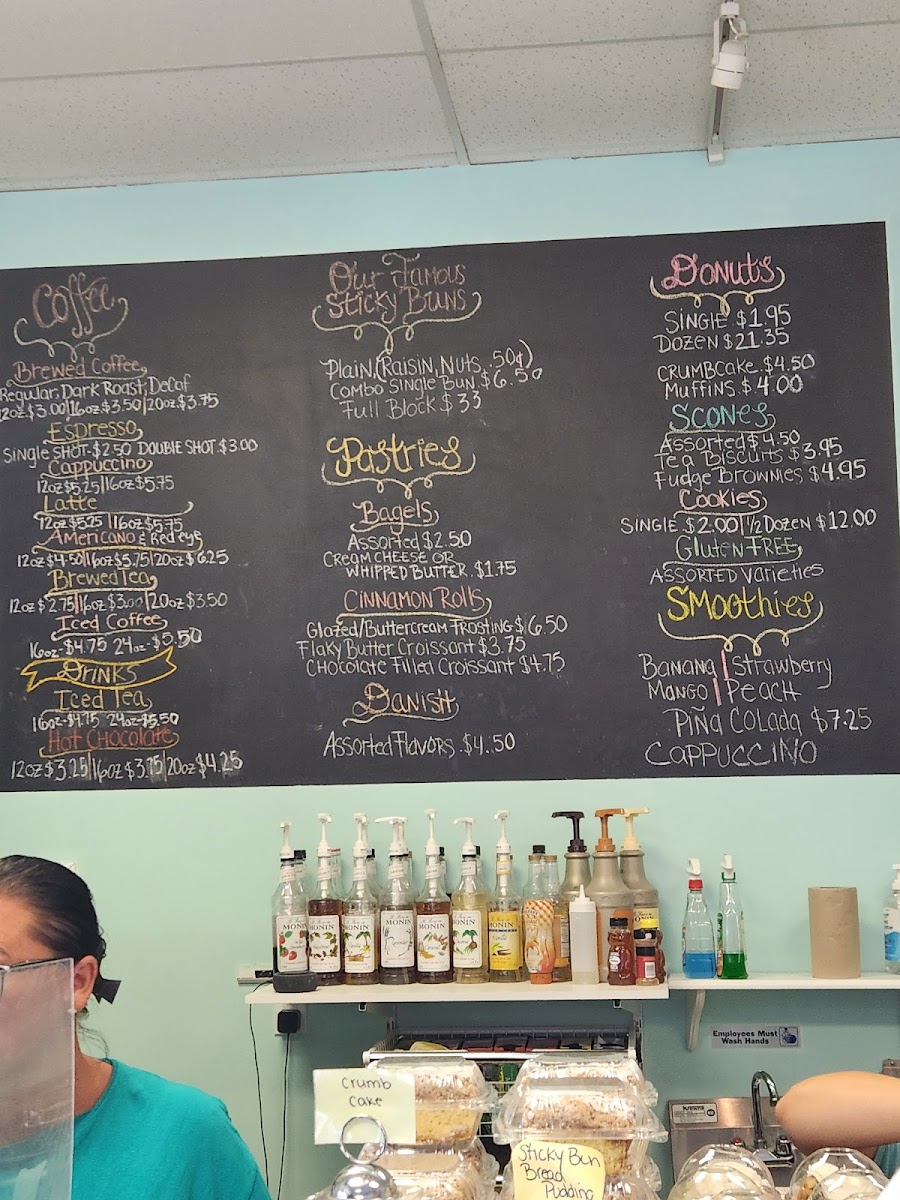 Coffee
Brewed Coffee
Regular, Dark Roast, Decaf
12oz $3.00|16oz $3.50|20oz $3.75
Espresso
Single Shot-$2.50 Double Shot.$3.00
Cappuccino
12oz $5.25|16oz $5.75
Latte
12oz $5.25|16oz $5.75
Americano & Red eye
12oz $4.50|16oz $5.75|20oz $6.25
Brewed Tea
12oz $2.75|16oz $3.00|20oz $3.50
Iced Coffee
16oz-$4.75 24oz-$5.50
Drinks
Iced Tea
16oz-$4.75 24oz-$5.50
Hot Chocolate
12oz $3.25|16oz $3.75|20oz $4.25
Our Famous
Sticky Buns
Plain, (Raisin, Nuts .50¢)
Combo Single Bun $6.50
Full Block $33
Pastries
Bagels
Assorted $2.50
Cream Cheese or
Whipped Butter.$1.75
Cinnamon Rolls
Glazed/Buttercream Frosting $6.50
Flaky Butter Croissant $3.75
Chocolate Filled Croissant $4.75
Danish
Assorted Flavors.$4.50
Donuts
Single.$1.95
Dozen $21.35
Crumbcake.$4.50
Muffins.$4.00
Scones
Assorted $4.50
Tea Biscuits $3.95
Fudge Brownies $4.95
Cookies
Single.$2.00|½ Dozen $12.00
Gluten Free
Assorted Varieties
Smoothies
Banana | Strawberry
Mango | Peach
Piña Colada $7.25
Cappuccino
MONIN
MONIN
MONIN
MONIN
MONIN
MONIN
MONIN
Employees Must
Wash Hands
Crumb
Cake
Sticky Bun
Bread
Pudding